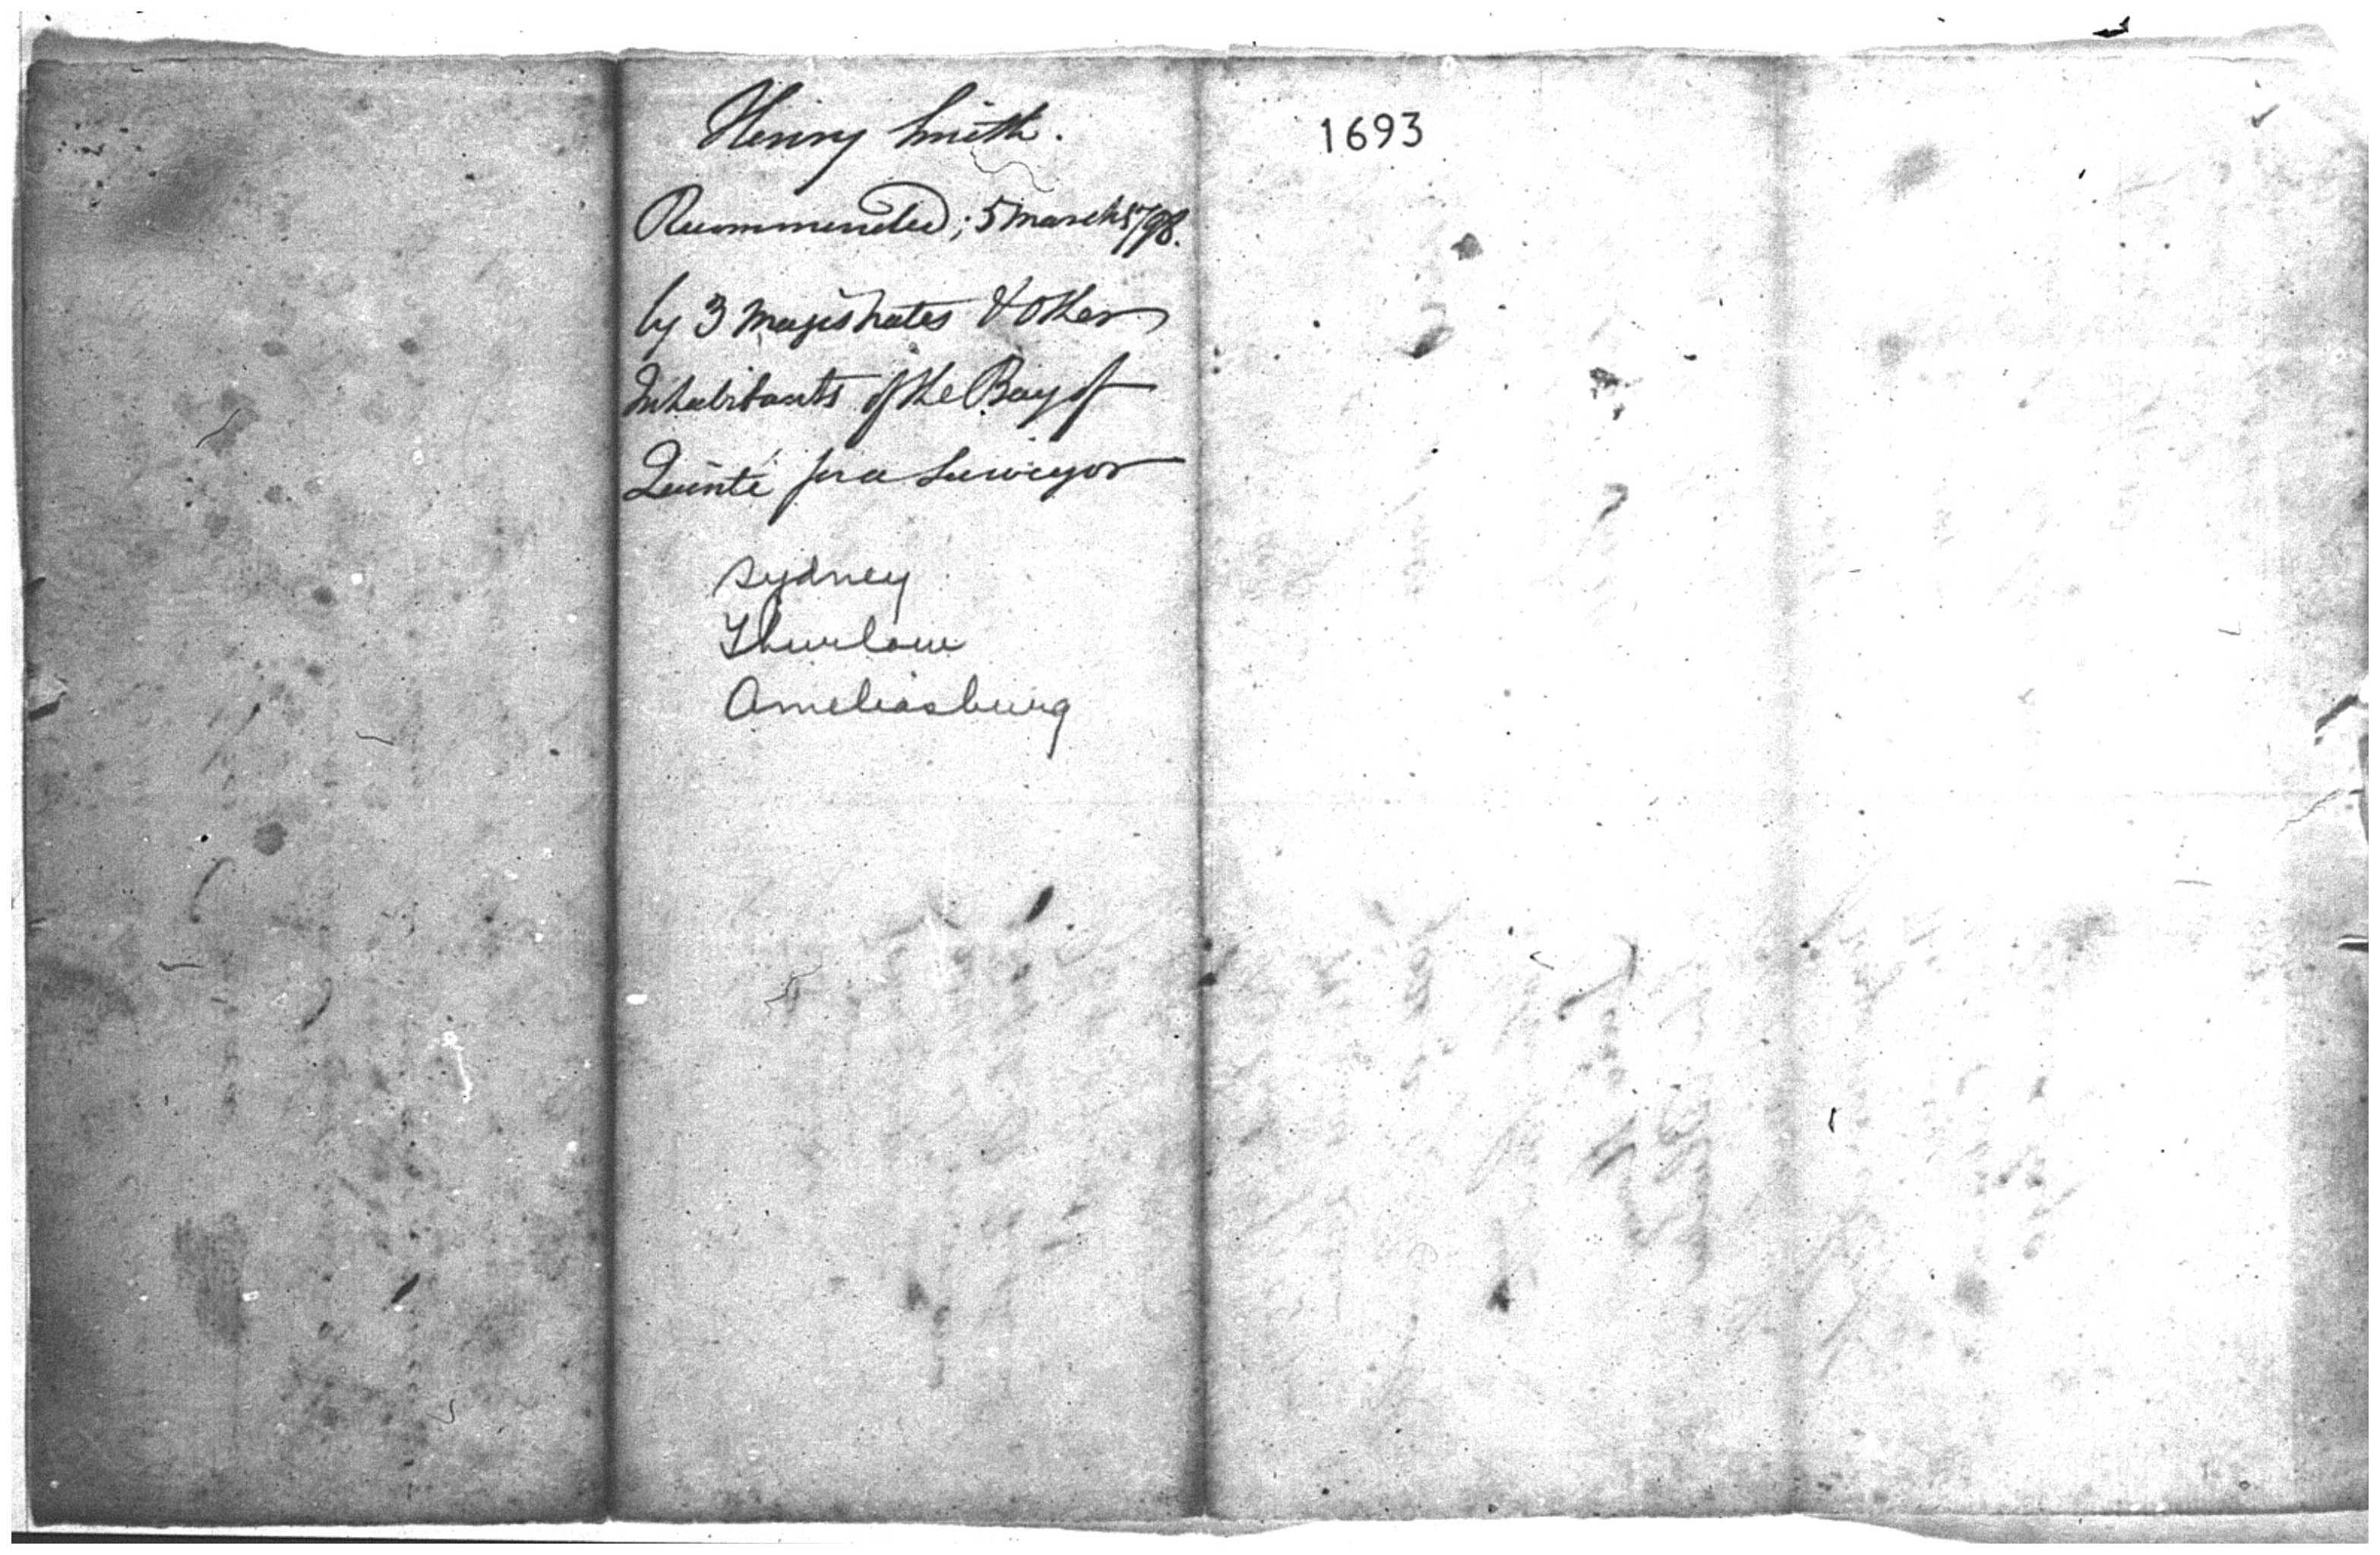 Henry Smith.
Recommended; 5 March 1798.
by 3 Magistrates & other
Inhabitants of the Bay of
Quinté for a Surveyor
Sydney
Thurlow
Ameliasburg
1693